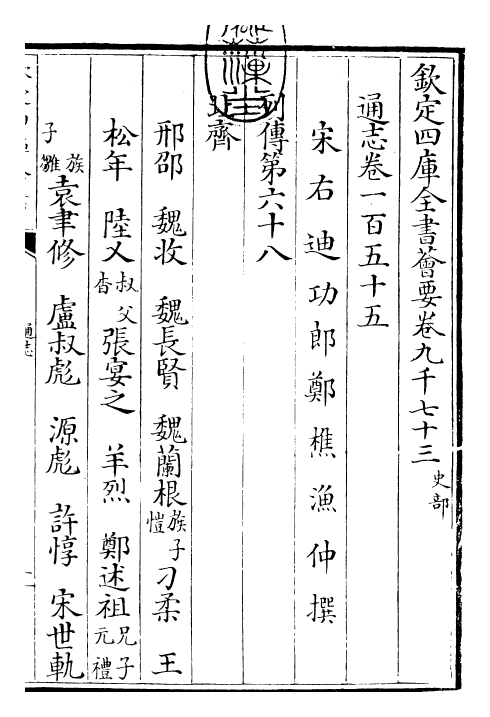 欽定四庫全書薈要卷九千七十三 史部
通志卷一百五十五
宋右迪功郎鄭樵漁仲撰
列傳第六十八
北齊
邢邵 魏收 魏長賢 魏蘭根 族子愷 刁柔 王
松年 陸乂 叔父杳 張宴之 羊烈 鄭述祖 兄子元禮
子雛族 袁聿修 盧叔彪 源彪 許惇 宋世軌
通志